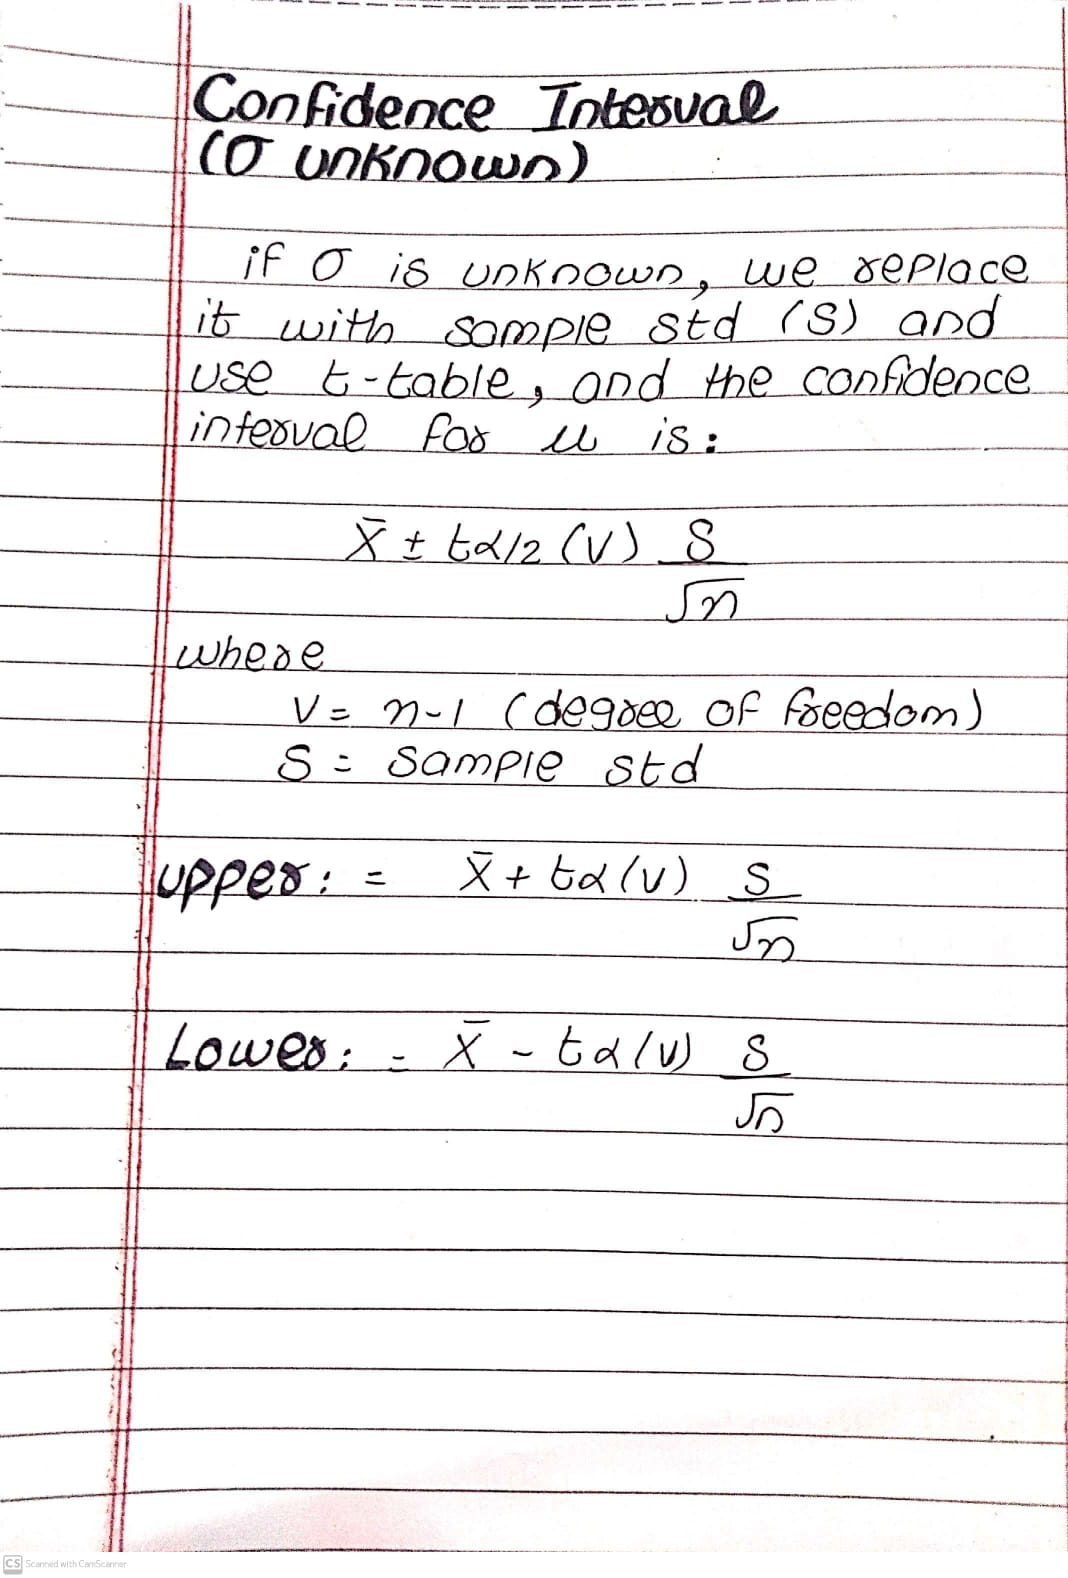 Confidence Interval
(σ unknown)
if σ is unknown, we replace
it with sample std (S) and
use t-table, and the confidence
interval for μ is:
x̄ ± tα/2 (v) S/√n
where
v = n-1 (degree of freedom)
S = sample std
upper: = x̄ + tα(v) S/√n
Lower: = x̄ - tα(v) S/√n
CS Scanned with CamScanner